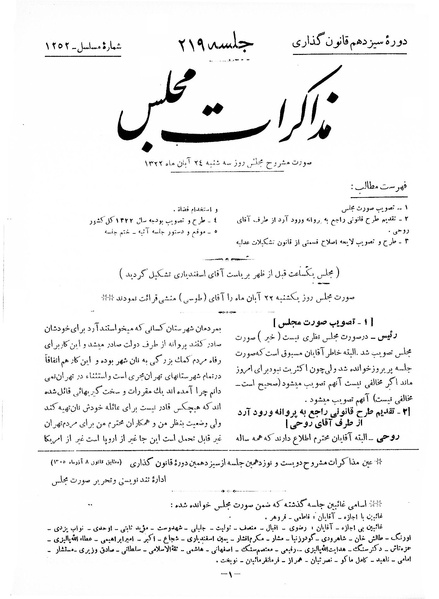 دورهٔ سیزدهم قانون گذاری
جلسه ۲۱۹
شمارهٔ مسلسل - ۱۲۵۲
مذاکرات مجلس
صورت مشروح مجلس روز سه شنبه ۲۴ آبان ماه ۱۳۲۲
فهرست مطالب:
۱ - تصویب صورت مجلس
۲ - تقدیم طرح قانونی راجع به پروانه ورود آرد از طرف آقای
روحی.
۳ - طرح و تصویب لایحه اصلاح قسمتی از قانون تشکیلات عدلیه
و استخدام قضاة.
۴ - طرح و تصویب بودجه سال ۱۳۲۲ کل کشور
۵ - موقع و دستور جلسه آتیه - ختم جلسه
(مجلس یکساعت قبل از ظهر بریاست آقای اسفندیاری تشکیل گردید)
صورت مجلس روز یکشنبه ۲۲ آبان ماه را آقای (طوسی) منشی قرائت نمودند
[۱ - تصویب صورت مجلس]
رئیس - در صورت مجلس نظری نیست (خیر) صورت
مجلس تصویب شد. البته خاطر آقایان مسبوق است که صورت
جلسه پریروز خوانده شد ولی چون اکثریت نبود برای امروز
ماند اگر مخالفی نیست آنهم تصویب میشود (صحیح است -
مخالفی نیست) آنهم تصویب میشود.
[۲ - تقدیم طرح قانونی راجع به پروانه ورود آرد
از طرف آقای روحی]
روحی - البته آقایان محترم اطلاع دارند که همه ساله
بمردمان شهرستان کسانی که میخواستند آرد برای خودشان
صادر کنند پروانه از طرف دولت صادر میشد و این کار برای
رفاه مردم کمک بزرگی به نان شهر بوده و این کار هم اتفاقاً
در تمام شهرستانهای تهران مجری است و استثناء در تهران نمی
دانم چرا آمده اند یک مقررات و سخت گیریهائی قائل شده
اند که هیچکس قادر نیست برای عائله خودش نان تهیه کند
ولی وضعیت بنظر من و همکاران محترم من برای مردم تهران
غیر قابل تحمل است این جا غیر از اروپا است غیر از امریکا
عین مذاکرات مشروح دویست و نوزدهمین جلسه از سیزدهمین دورهٔ قانون گذاری (مطابق قانون ۸ آذرماه ۱۳۰۵)
ادارهٔ تند نویسی و تحریر صورت مجلس
اسامی غائبین جلسه گذشته که ضمن صورت مجلس خوانده شده:
غائبین با اجازه - آقایان: فاطمی - فروهر.
غائبین بی اجازه - آقایان: رضوی - اقبال - منصف - تولیت - جلیلی - شهدوست - مؤید ثابتی - اوحدی - نواب یزدی -
اورنگ - طالش خان - شاهرودی - گودرزنیا - مشار - مکرم افشار - یمین اسفندیاری - شجاع - اکبر - امیر ابراهیمی - عطاءالله پالیزی -
عزتاش - دکتر سنگ - هدایت الله پالیزی - رفیعی - معتصم سنگ - اصفهانی - هاشمی - ثقةالاسلامی - سلطانی - صادق وزیری - مستشار -
امامی - ناهید - کامل ماکو - نصرتیان - همراز - فرمانفرمائیان - نوبخت.
- ۱ -